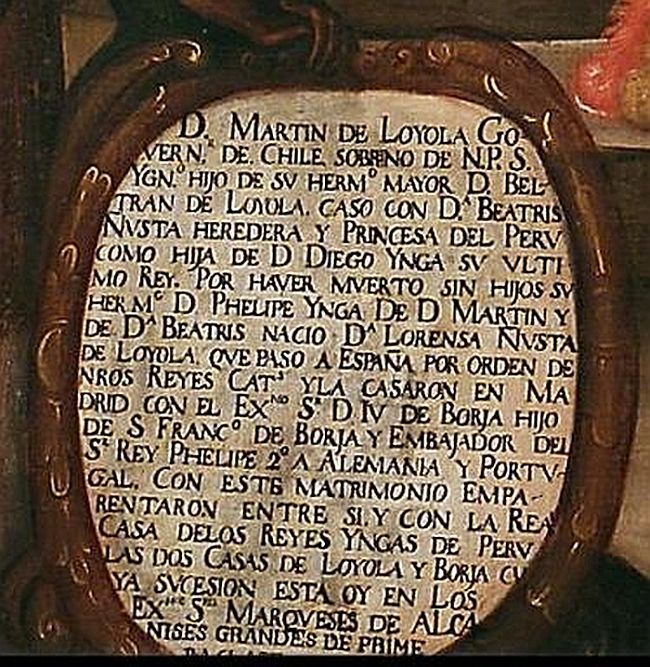 D. MARTIN DE LOYOLA GO-
VERN.ʳ DE. CHILE, SOBRINO DE N.P. S.
YGN.º HIJO DE SV HERMº MAYOR D. BEL-
TRAN DE LOYOLA. CASO CON D.ª BEATRIS
ÑVSTA HEREDERA Y PRINCESA DEL PERV
COMO HIJA DE D DIEGO YNGA SV VLTI
MO REY. POR HAVER MVERTO SIN HIJOS SV
HERMº D. PHELIPE YNGA. DE D MARTIN Y
DE. Dª BEATRIS NACIO Dª LORENSA ÑVSTA
DE LOYOLA. QVE PASO A ESPAÑA POR ORDEN DE
NROS REYES CATˢ YLA CASARON EN MA
DRID CON EL EXᵐᵒ Sʳ D. IV DE BORJA HIJO
DE S FRANCº DE BORJA Y EMBAJADOR DEL
Sʳ REY PHELIPE 2º A ALEMANIA Y PORTV-
GAL. CON ESTE MATRIMONIO EMPA-
RENTARON ENTRE SI, Y CON LA REA
CASA DELOS REYES YNGAS DE PERV
LAS DOS CASAS DE LOYOLA Y BORJA CU
YA SVCESION ESTA OY EN LOS
EXᵐᵒˢ Sʳᵉˢ MARQVESES DE ALCA
NISES GRANDES DE PRIME